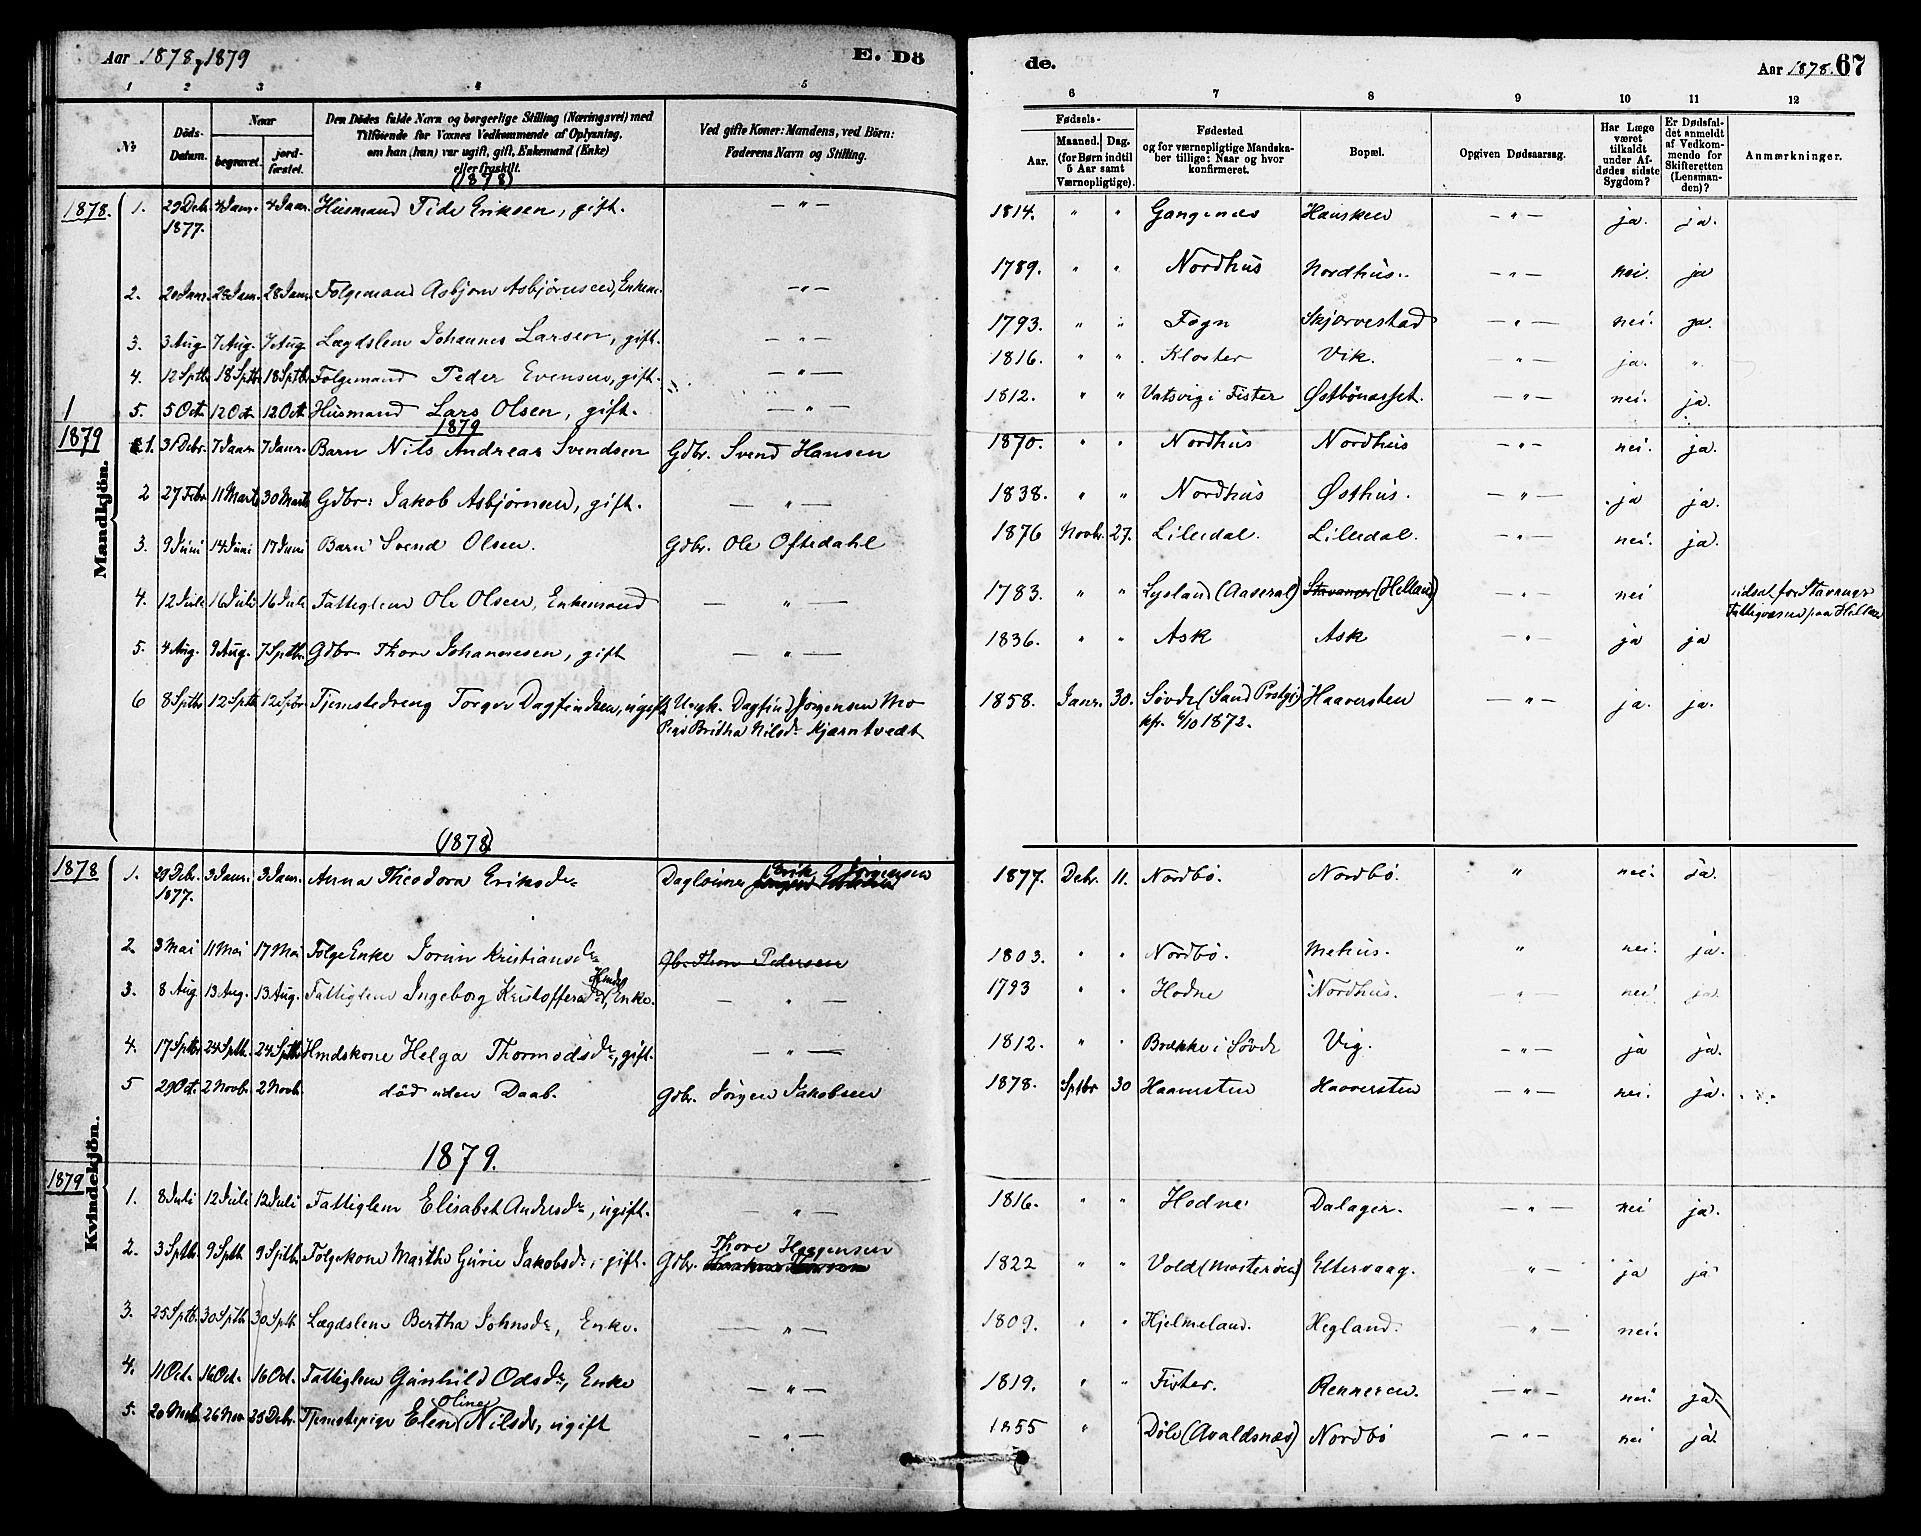 Aar 1878, 1879 E. Dö
de. Aar 1878. 67
1 2 3 4 5
6 7 8 9 10 11 12
No. Döds-Datum. Naar begravet. jordfæstet. Den Dödes fulde Navn og borgerlige Stilling (Næringsvei) med Tilföiende for Voxnes Vedkommende af Oplysning, om han (hun) var ugift, gift, Enkemand (Enke) eller fraskilt. Ved gifte Koner: Mandens, ved Börn: Faderens Navn og Stilling.
Fødsels- Aar. Maaned. Dag. (for Børn indtil 5 Aar samt Værnepligtige). Fødested og for værnepligtige Mandskaber tillige: Naar og hvor konfirmeret. Bopæl. Opgiven Dødsaarsag. Har Læge været tilkaldt under Afdødes sidste Sygdom? Er Dødsfaldet anmeldt af Vedkommende for Skifteretten (Lensmanden)? Anmærkninger.
Mandkjön.
(1878)
1878. 1. 29 Debr. 1877. 4 Janr. 4 Janr. Husmand Tide Eriksen, gift. — " — 1814. " " Gangenes Hausken — " — ja. ja.
2. 20 Janr. 28 Janr. 28 Janr. Folgemand Asbjørn Asbjørnsen, Enkem. — " — 1789. " " Nordhus Nordhus. — " — nei. ja
3. 3 Aug. 7 Aug. 7 Aug. Lægdslem Johannes Larsen, gift. — " — 1793. " " Fogn Skjørvestad — " — nei. ja.
4. 12 Sptb. 18 Sptb. 18 Sptb. Folgemand Peder Evensen, gift. — " — 1816. " " Kloster Vik. — " — ja. "
5. 5 Oct. 12 Oct. 12 Oct. Husmand Lars Olsen, gift. — " — 1812. " " Vatsvig i Fister Østbönesset. — " — nei. ja.
1
1879
1879 1. 31 Debr. 7 Janr. 7 Janr. Barn Nils Andreas Svendsen Gdbr. Svend Hansen 1870. " " Nordhus Nordhus — " — nei. ja.
2 27 Febr. 11 Marts 30 Marts Gdbr: Jakob Asbjørnsen, gift. — " — 1838. " " Nordhus Østhus. — " — ja ja.
3. 9 Juni 14 Juni 17 Juni Barn Svend Olsen. Gdbr. Ole Oftedahl 1876 Novbr. 27. Liledal. Liledal. — " — nei. ja.
4. 12 Juli 16 Juli 16 Juli Fattiglem Ole Olsen, Enkemand — " — 1783. " " Lysland (Aaseral) Stavanger (Helland) — " — nei udsat for Stavanger Fattigvæsen paa Helland
5. 4 Aug. 9 Aug. 7 Sptbr. Gdbr Thore Johannesen, gift — " — 1836. " " Ask Ask — " — ja ja
6 8 Sptbr 12 Sptb 12 Sptbr Tjenestedreng Torger Dagfindsen, ugift Ungk. Dagfind Jörgensen Mo 1858. Janr. 30. Søvde (Sand Prstgj.) Haaversten — " — ja. ja.
Pige Britha Nilsdr Kjærntvedt kfr. 6/10 1872.
Kvindekjön.
(1878)
1878 1. 20 Debr. 1877. 3 Janr. 3 Janr. Anna Theodora Eriksdr Daglönner Erik Jörgensen 1877. Debr. 11. Nordbö. Nordbö. " nei. ja.
2 3 Mai 11 Mai 17 Mai Folge Enke Jorun Kristiansdr Gb. Thore Pedersen 1803. " " Nordbö. Mehus. " nei. ja.
3. 8 Aug 13 Aug. 13 Aug. Fattiglem Ingeborg Kristoffersdr, Enke. — " — 1793 " " Hodne Nordhus. — " — nei ja.
4. 17 Sptbr 24 Sptb. 24 Sptb. Hmdskone Helga Thormodsdr, gift. — " — 1812. " " Brække i Søvde Vig. — " — ja ja.
5 29 Oct. 2 Novb. 2 Novb. död uden Daab. Gdbr. Jörgen Jakobsen 1878. Sptbr 30 Haaversten Haaversten — " — nei. ja.
1879.
1879 1. 8 Juli 12 Juli 12 Juli Fattiglem Elisabet Andersdr, ugift. — " — 1816. " " Hodne Dalager. — " — nei ja.
2. 3 Sptb. 9 Sptb 9 Sptb. Folgekone Marthe Gurie Jakobsdr, gift. Gdbr. Thore Haagensen 1822 " " Vold (Mosterøen) Eltervaag. " — ja ja
3. 25 Sptb. 30 Sptb. 30 Sptb. Lægdslem Bertha Johnsdr, Enke. — " — 1809. " " Hjelmeland. Hegland. — " — nei.
4. 11 Oct. 16 Oct. 16 Oct. Fattiglem Gunhild Odsdr, Enke — " — 1819. " " Fister. Renneren. — " — nei ja
5. 20 Nov. 26 Nov. 25 Debr. Tjenestepige Elen Oline Nilsdr, ugift — " — 1855 " Döle (Avaldsnæs) Nordbö — " — nei ja.